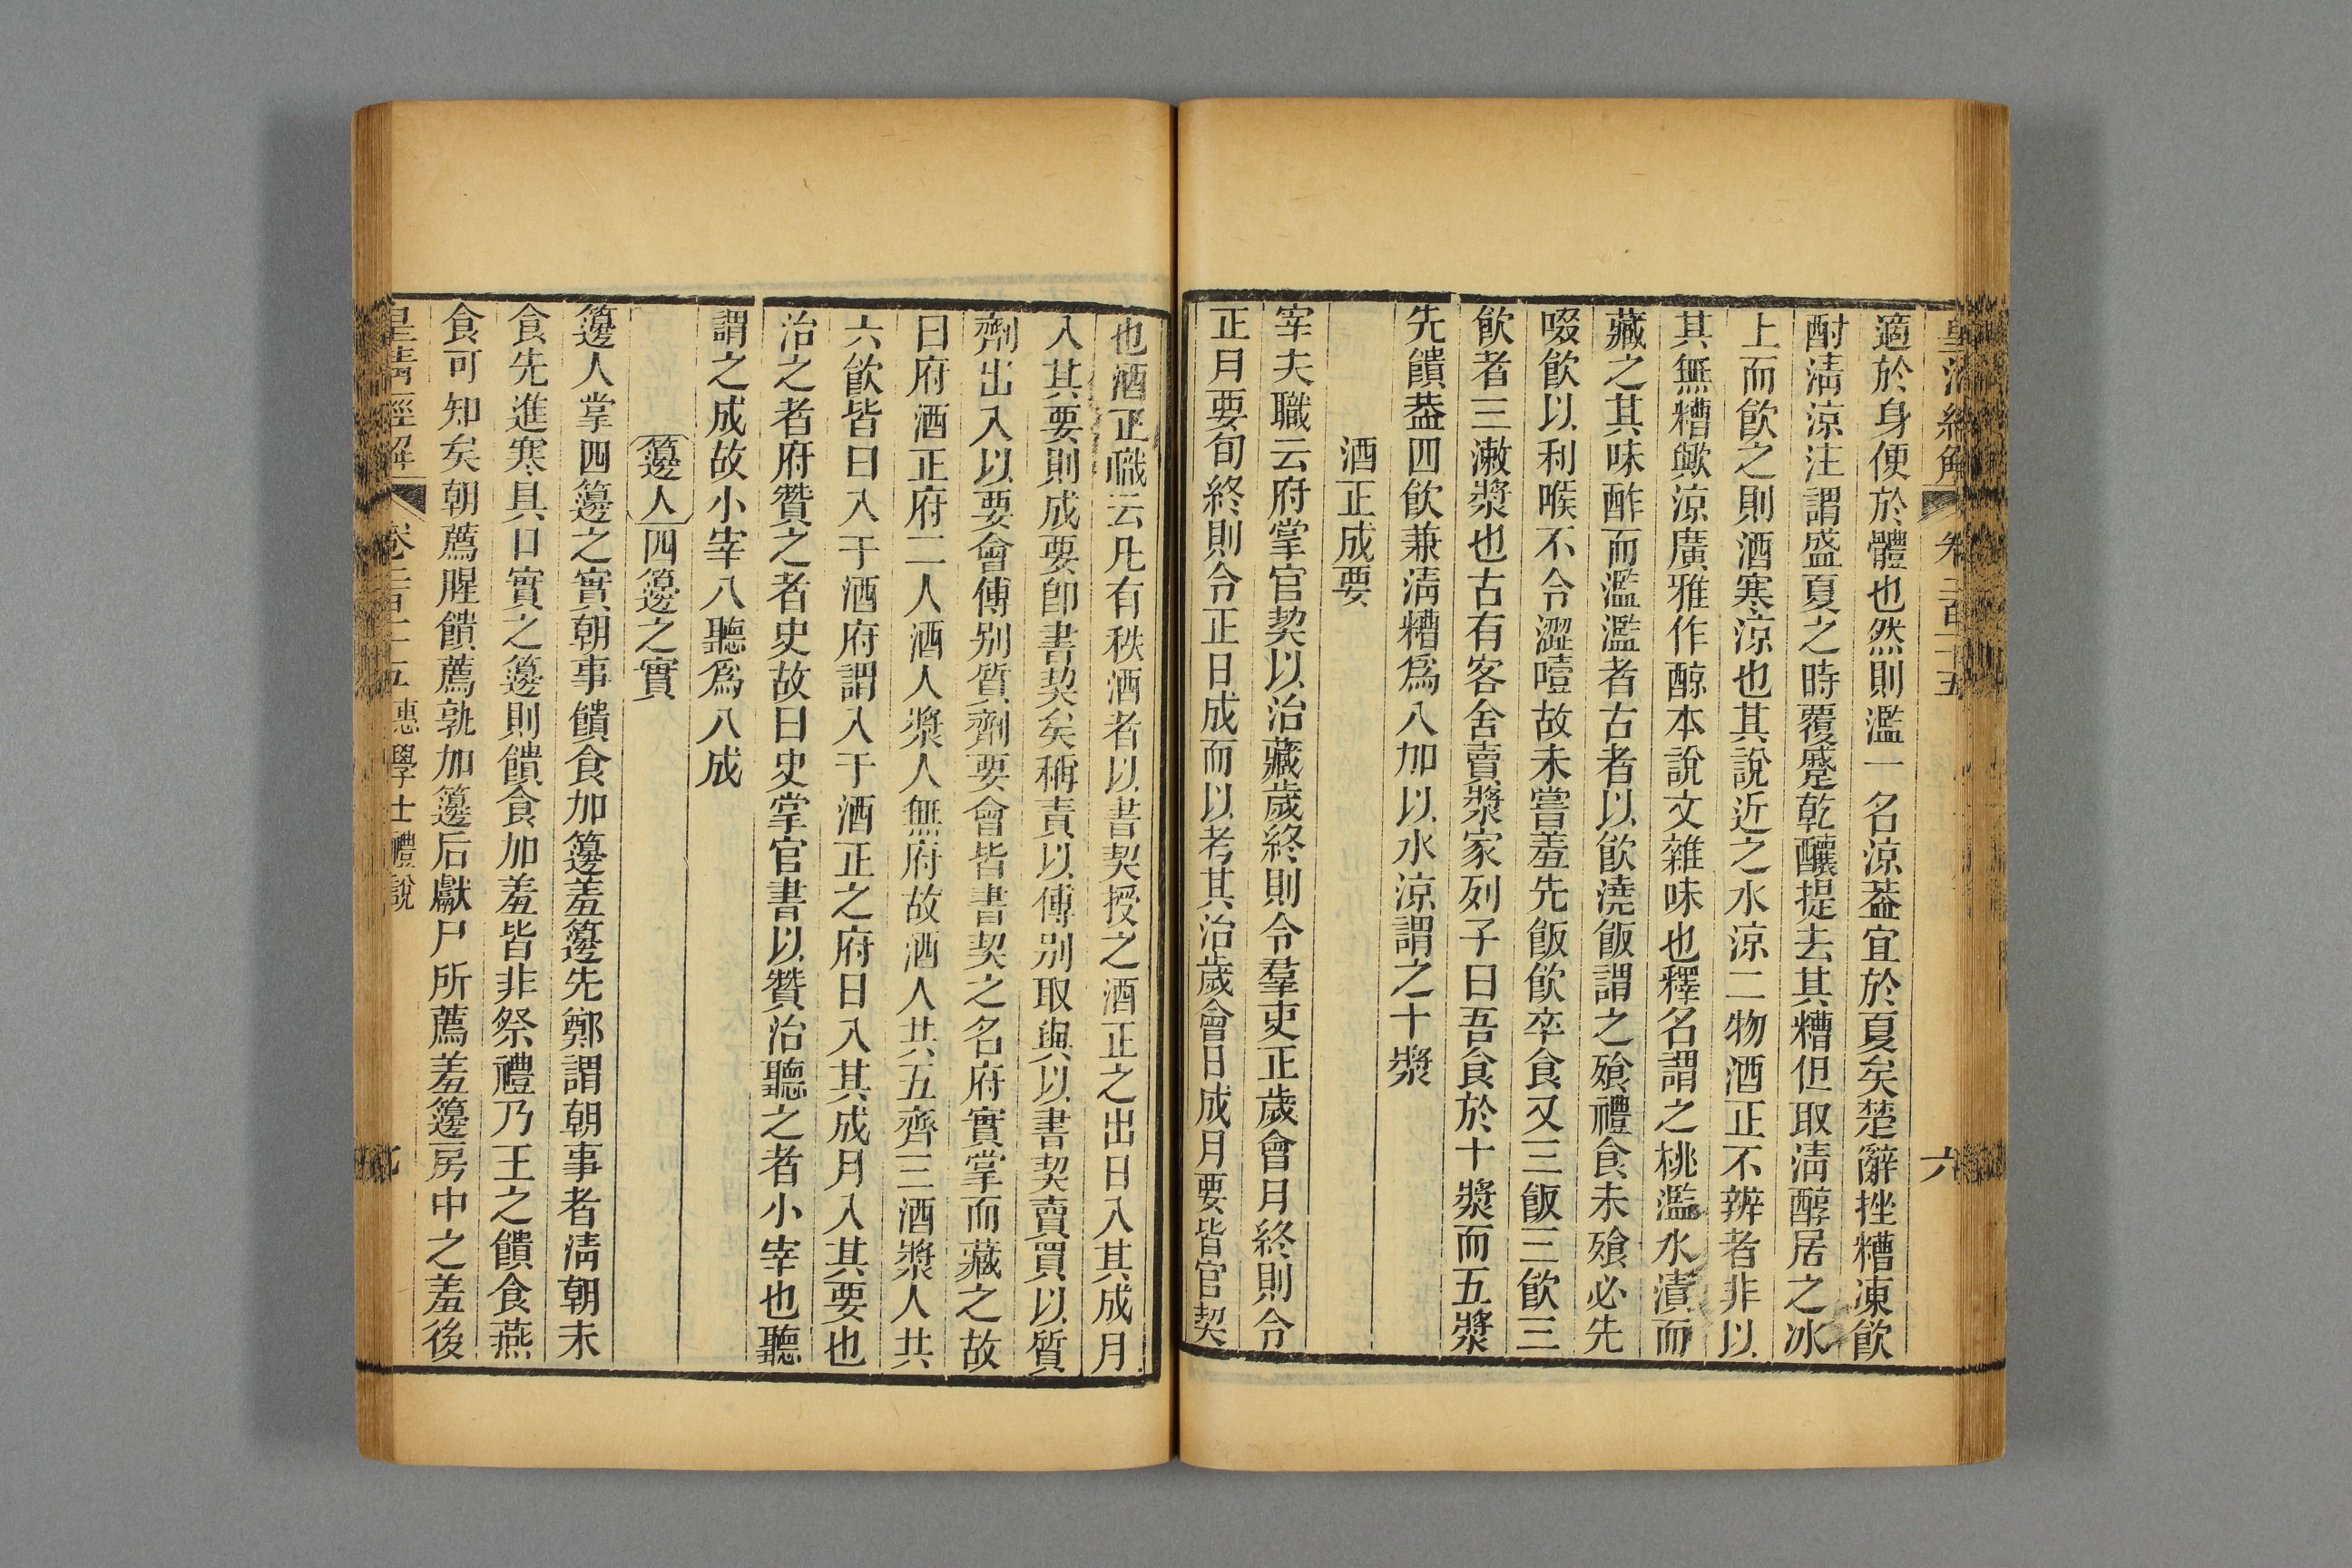 皇清經解 卷二百十五 六
適於身便於體也然則濫一名涼葢宜於夏矣楚辭挫糟凍飮
酎淸涼注謂盛夏之時覆蹙乾釀提去其糟但取淸醇居之冰
上而飮之則酒寒涼也其說近之水涼二物酒正不辨者非以
其無糟歟涼廣雅作䣼本說文雜味也釋名謂之桃濫水漬而
藏之其味酢而濫濫者古者以飮澆飯謂之飱禮食未飱必先
啜飮以利喉不令澀噎故未嘗羞先飯飮卒食又三飯三飮三
飮者三漱漿也古有客舍賣漿家列子曰吾食於十漿而五漿
先饋葢四飮兼淸糟爲八加以水涼謂之十漿
酒正成要
宰夫職云府掌官契以治藏歲終則令羣吏正歲會月終則令
正月要旬終則令正日成而以考其治歲會日成月要皆官契
也酒正職云凡有秩酒者以書契授之酒正之出日入其成月
入其要則成要卽書契矣稱責以傅别取與以書契賣買以質
劑出入以要會傅别質劑要會皆書契之名府實掌而藏之故
曰府酒正府二人酒人漿人無府故酒人共五齊三酒漿人共
六飮皆曰入于酒府謂入于酒正之府日入其成月入其要也
治之者府贊之者史故曰史掌官書以贊治聽之者小宰也聽
謂之成故小宰八聽爲八成
籩人四籩之實
籩人掌四籩之實朝事饋食加籩羞籩先鄭謂朝事者淸朝未
食先進寒具口實之籩則饋食加羞皆非祭禮乃王之饋食燕
食可知矣朝薦腥饋薦孰加籩后獻尸所薦羞籩房中之羞後
皇清經解 卷二百十五 惠學士禮說 七